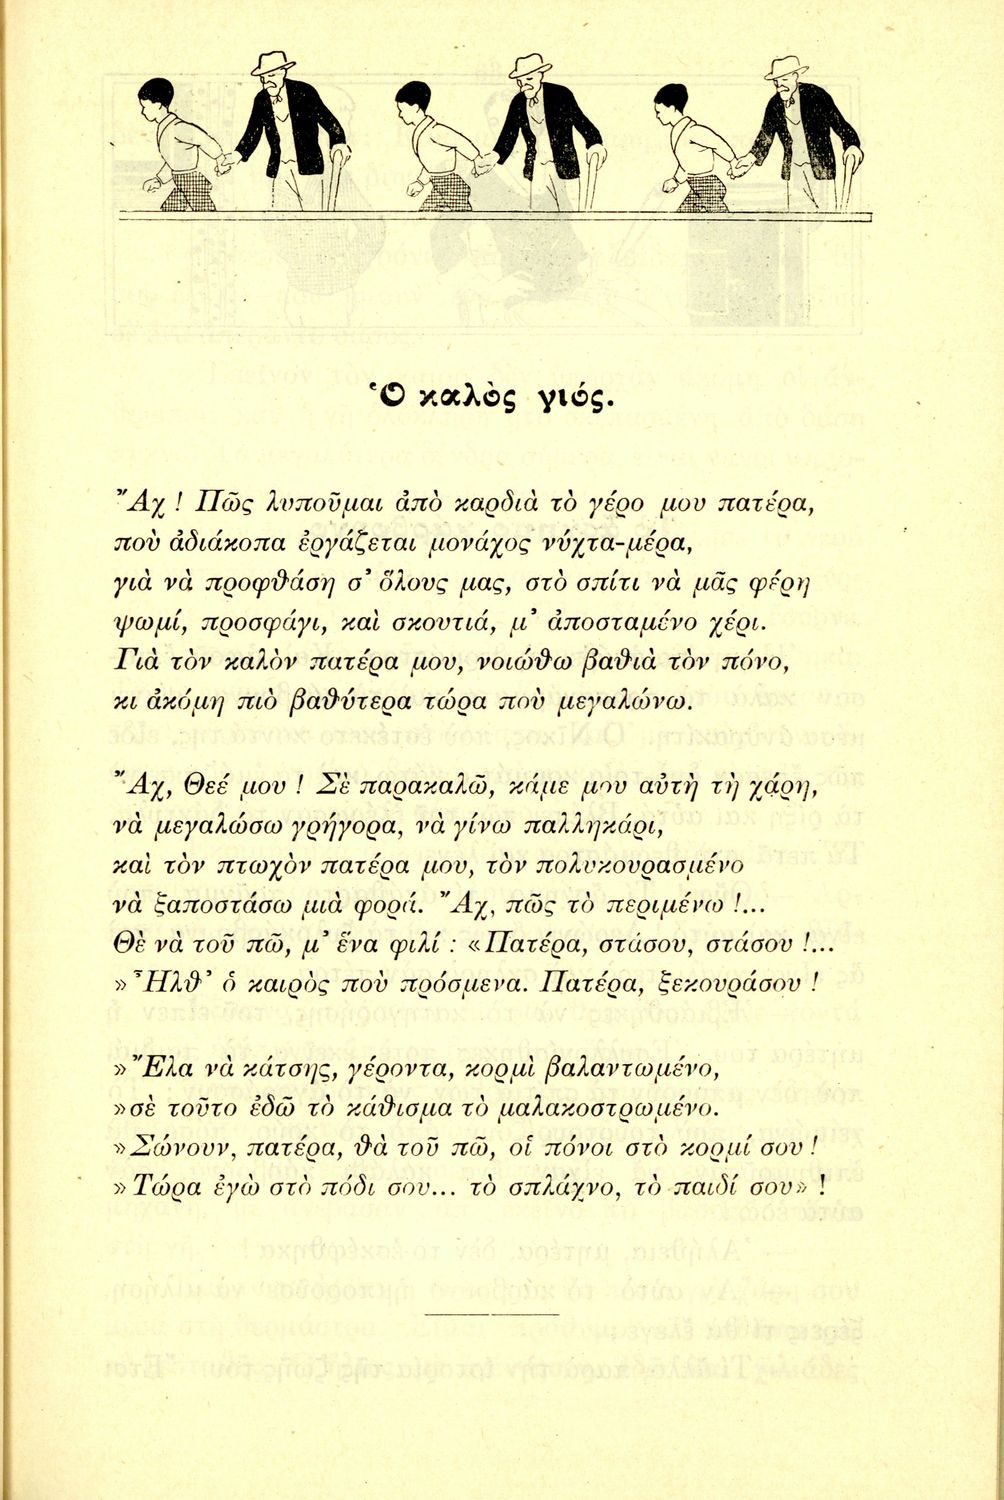 Ὁ καλὸς γιός.
Ἄχ! Πῶς λυποῦμαι ἀπὸ καρδιὰ τὸ γέρο μου πατέρα,
ποὺ ἀδιάκοπα ἐργάζεται μονάχος νύχτα-μέρα,
γιὰ νὰ προφθάση σ' ὅλους μας, στὸ σπίτι νὰ μᾶς φέρη
ψωμί, προσφάγι, καὶ σκουτιά, μ' ἀποσταμένο χέρι.
Γιὰ τὸν καλὸν πατέρα μου, νοιώθω βαθιὰ τὸν πόνο,
κι ἀκόμη πιὸ βαθύτερα τώρα ποὺ μεγαλώνω.
Ἄχ, Θεέ μου! Σὲ παρακαλῶ, κάμε μου αὐτὴ τὴ χάρη,
νὰ μεγαλώσω γρήγορα, νὰ γίνω παλληκάρι,
καὶ τὸν πτωχὸν πατέρα μου, τὸν πολυκουρασμένο
νὰ ξαποστάσω μιὰ φορά. Ἄχ, πῶς τὸ περιμένω!...
Θὲ νὰ τοῦ πῶ, μ' ἕνα φιλί: «Πατέρα, στάσου, στάσου!...
»Ἦλθ' ὁ καιρὸς ποὺ πρόσμενα. Πατέρα, ξεκουράσου!
»Ἔλα νὰ κάτσης, γέροντα, κορμὶ βαλαντωμένο,
»σὲ τοῦτο ἐδῶ τὸ κάθισμα τὸ μαλακοστρωμένο.
»Σώνουν, πατέρα, θὰ τοῦ πῶ, οἱ πόνοι στὸ κορμί σου!
»Τώρα ἐγὼ στὸ πόδι σου... τὸ σπλάχνο, τὸ παιδί σου»!